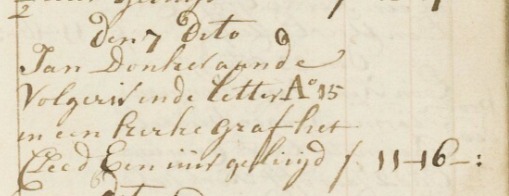 den 7 dito
Jan Donker aande
Volgerwinde Letter A° 15
in een kerke graf het
Cleed Een uur geluijd f 11-16-: